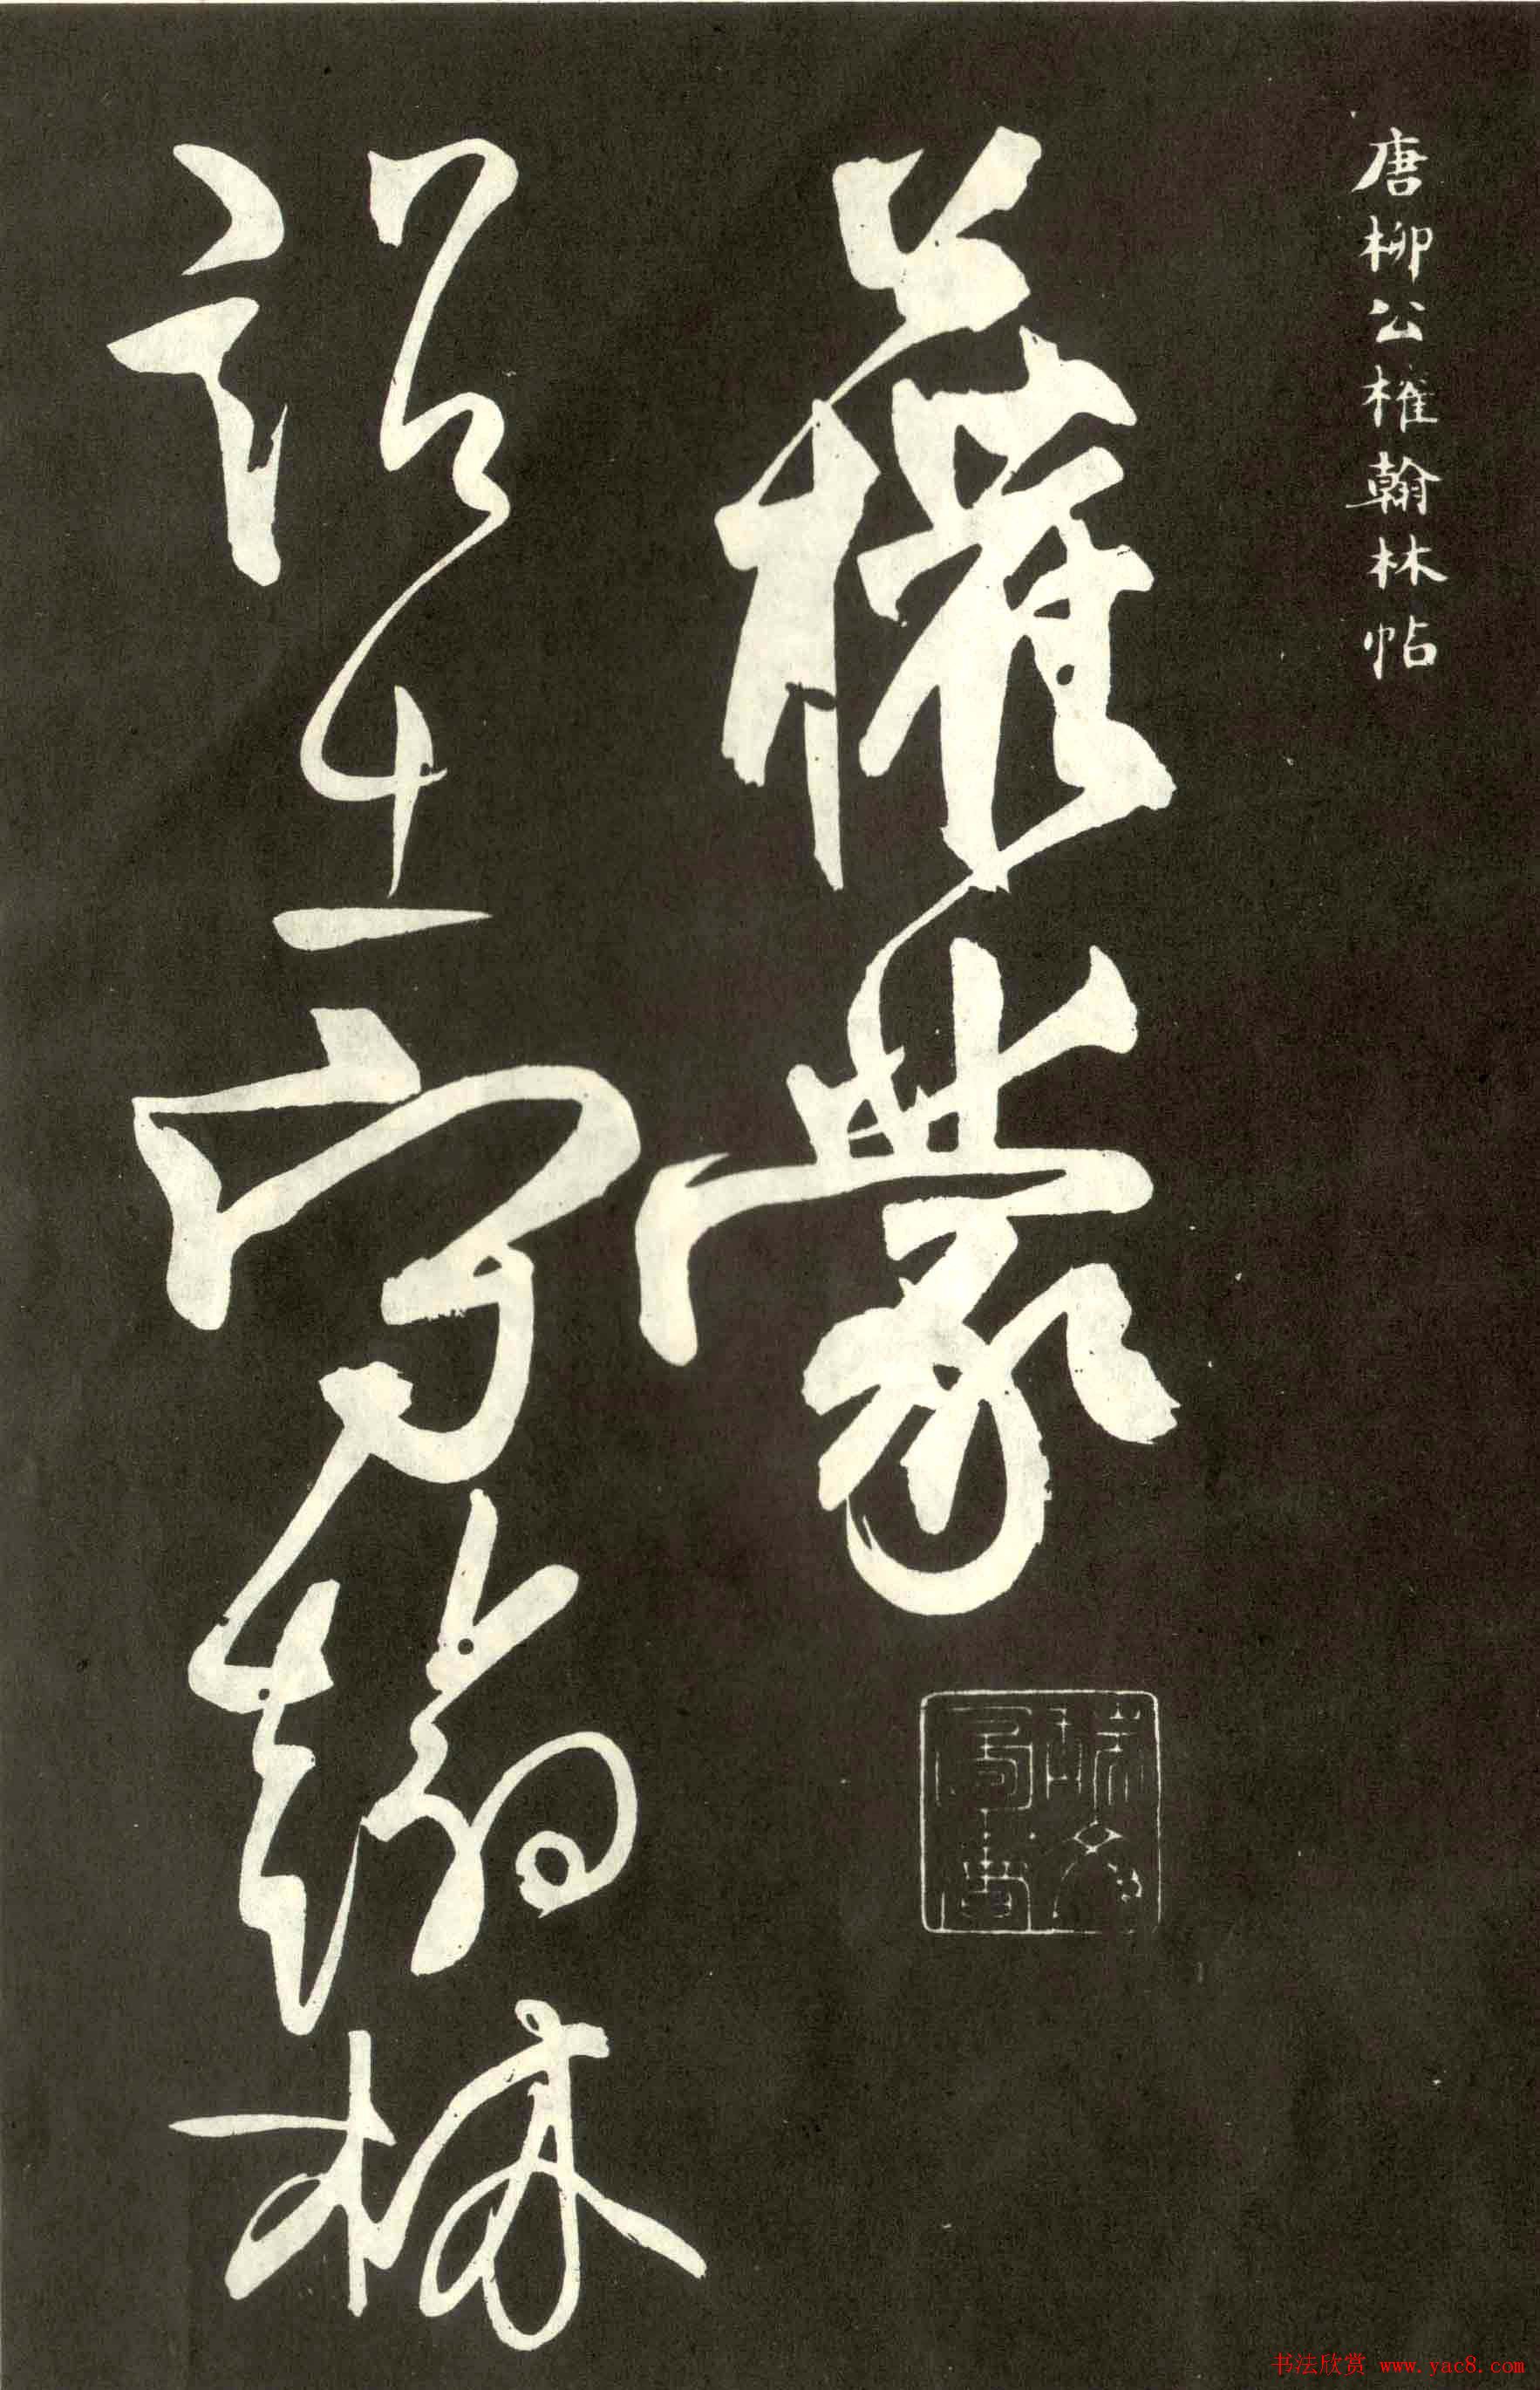 唐柳公權翰林帖
公權蒙
詔出守翰林
书法欣赏 www.yac8.com